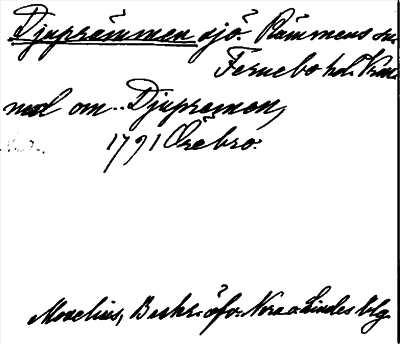 Djuprämmen sjö. Rämmens sn
Fernebo hd. Vrml.
med om .. Djupremen,
1791 Örebro.
Morelius, Beskr. öfv. Nora o Lindes blg.